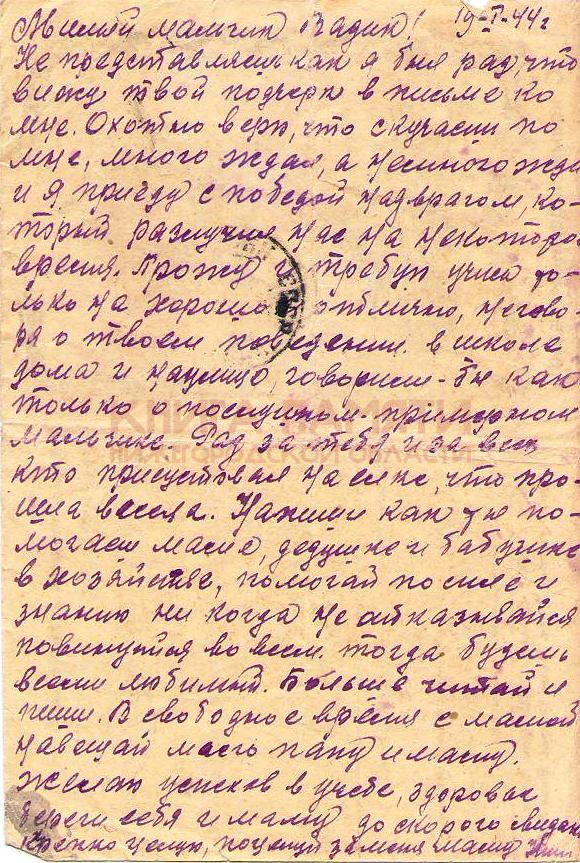 Милой мальчик Вадик! 19-I-44г
Не представляеш как я был рад, что
вижу твой подчерк в письме ко
мне. Охотно верю, что скучаеш по
мне, много ждал, а немного жди
и я приеду с победой над врагом, ко-
торый разлучил нас на некоторо
время. Прошу и требую учись то-
лько на хорошо и отлично, не гово-
ря о твоем поведении. в школе
дома и наулице, говорили-бы как
только о послушном-примерном
мальчике. Рад за тебя и за всех
кто присуствовал на елке, что про-
шла весела. Напиши как ты по-
могаеш маме, дедушке и бабушке
в хозяйстве, помогай по силе и
знанию ни когда не отказывайся
повинуйся во всем. тогда будешь
всеми любимый. Больше читай и
пиши. В свободное время с мамой
навещай маво папу и маму.
Желаю успехов в учебе, здоровья
береги себя и маму до скорого свидан
крепко целую, поцелуй за меня маму
КНИГА ПАМЯТИ
НИЖЕГОРОДСКОЙ ОБЛАСТИ